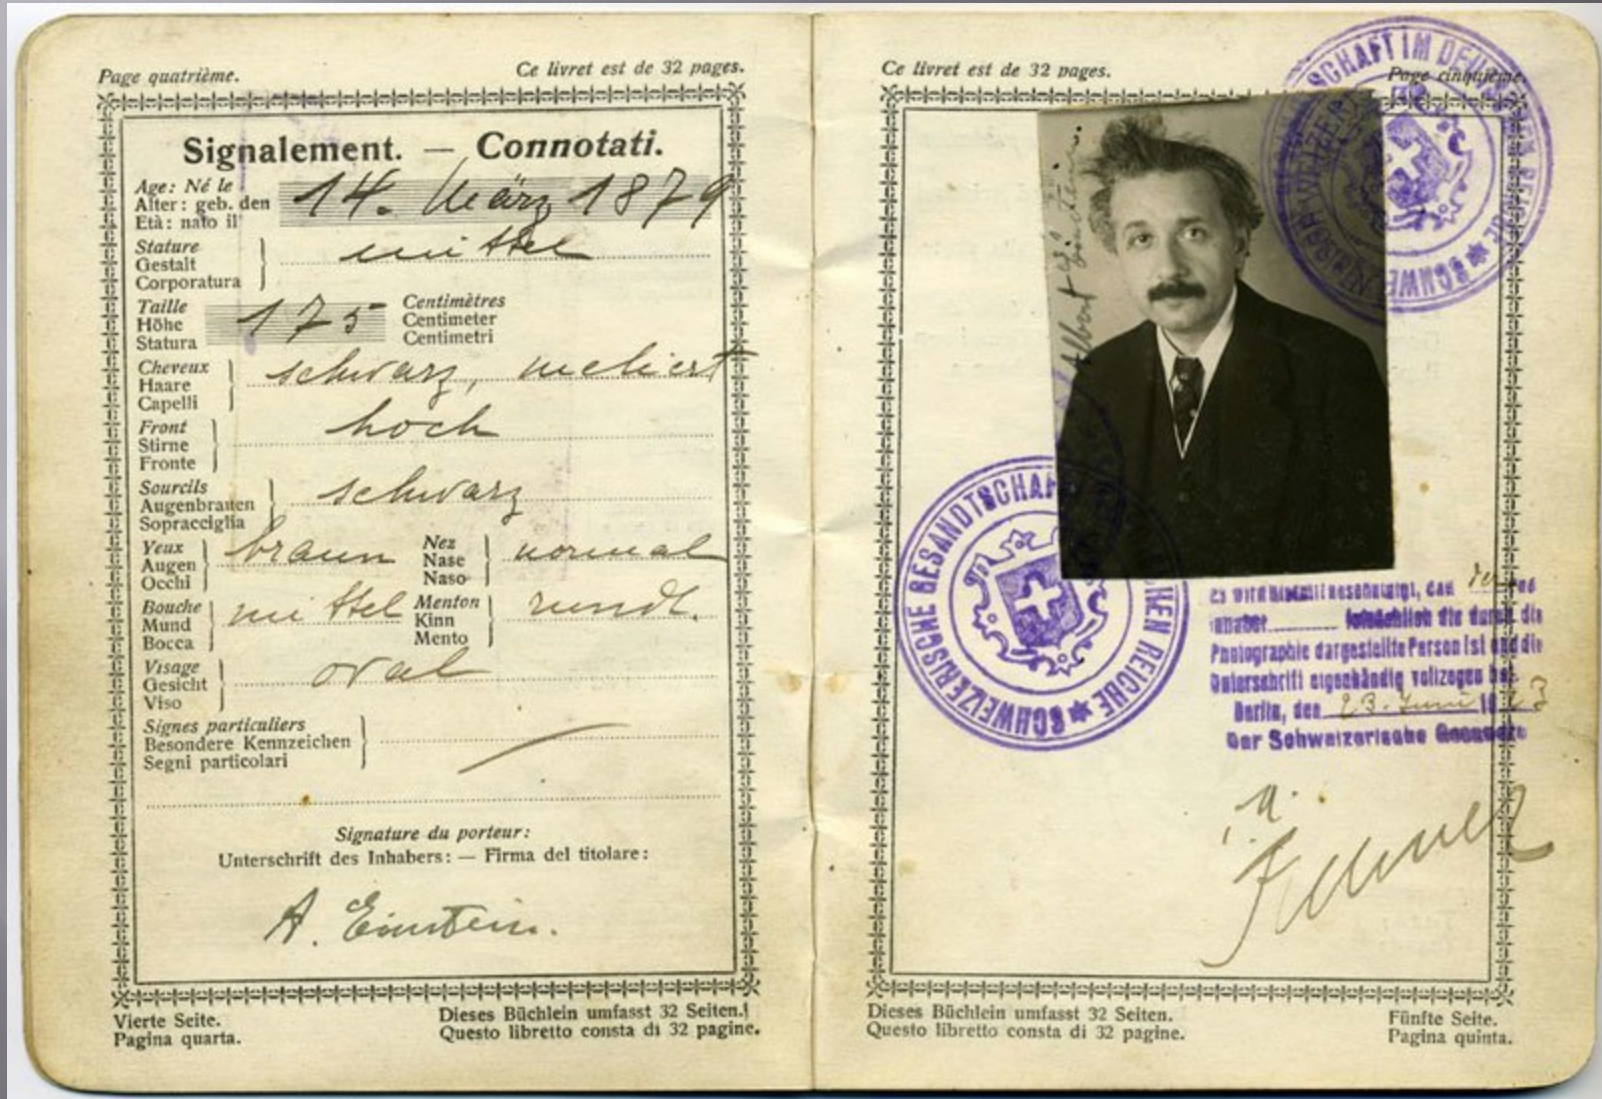 Page quatrième.
Ce livret est de 32 pages.
Signalement. — Connotati.
Age: Né le
Alter: geb. den
Età: nato il
14. März 1879
Stature
Gestalt
Corporatura
mittel
Taille
Höhe
Statura
175
Centimètres
Centimeter
Centimetri
Cheveux
Haare
Capelli
schwarz, meliert
Front
Stirne
Fronte
hoch
Sourcils
Augenbrauen
Sopracciglia
schwarz
Yeux
Augen
Occhi
braun
Nez
Nase
Naso
normal
Bouche
Mund
Bocca
mittel
Menton
Kinn
Mento
rund.
Visage
Gesicht
Viso
oval
Signes particuliers
Besondere Kennzeichen
Segni particolari
Signature du porteur:
Unterschrift des Inhabers: — Firma del titolare:
A. Einstein.
Vierte Seite.
Pagina quarta.
Dieses Büchlein umfasst 32 Seiten.
Questo libretto consta di 32 pagine.
Ce livret est de 32 pages.
Page cinquième.
SCHWEIZERISCHE GESANDTSCHAFT IM DEUTSCHEN REICHE
Albert Einstein
SCHWEIZERISCHE GESANDTSCHAF CHEN REICHE
Es wird hiermit bescheinigt, dass der
Inhaber tatsächlich die durch die
Photographie dargestellte Person ist und die
Unterschrift eigenhändig vollzogen hat.
Berlin, den 23. Juni 1923
Der Schweizerische Gesandte
Dieses Büchlein umfasst 32 Seiten.
Questo libretto consta di 32 pagine.
Fünfte Seite.
Pagina quinta.